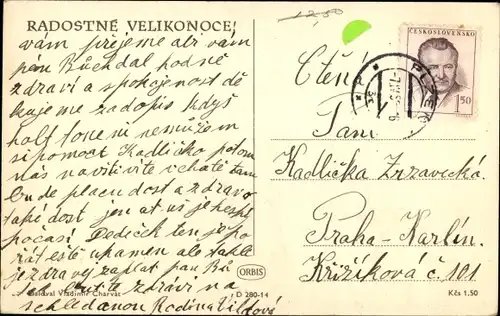 RADOSTNÉ VELIKONOCE!
vám přejeme abi vám
pán Bůch dal hodně
zdraví a spokojenost dě
kujeme za dopis když
half toneni nemůžem
si pomoct Kadličko potom
nás navštivíte v chatě tam
bude placu dost a zdravo
také dost jen at už je hespi
počasí Dědeček ten je po
řát estě upamen ale takle
je zdravej zaplat pan Bů
buďte zdraví na
schledanou Rodina Vildová
Maloval Vladimír Charvát
D 280-14
ORBIS
12,50
ČESKOSLOVENSKO
1,50
PLZEŇ
Ctěná
Paní
Kadlička Zrzavecká
Praha-Karlín.
Křižíková č. 101
Kčs 1.50